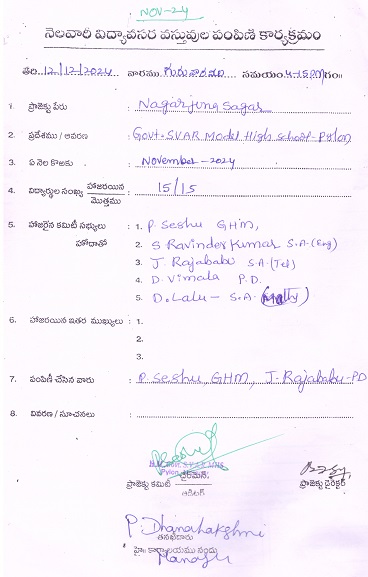 NOV-24
నెలవారి విద్యావసర వస్తువుల పంపిణి కార్యక్రమం
తేది. 12/12/2024 వారము గురువారము సమయం 4-15 PM గం॥
1. ప్రాజెక్టు పేరు : Nagarjuna Sagar
2. ప్రదేశము / ఆవరణ : Govt-SVAR Model High School-Pylon
3. ఏ నెల కొఱకు : November-2024
4. విద్యార్థుల సంఖ్య హాజరయిన / మొత్తము : 15/15
5. హాజరైన కమిటీ సభ్యులు : 1. P. Seshu GHM,
హోదాతో 2. S Ravinder Kumar S.A-(Eng)
3. J. Rajababu S.A (Tel)
4. D. Vimala P.D.
5. D. Lalu - S.A
6. హాజరయిన ఇతర ముఖ్యులు : 1.
2.
3.
7. పంపిణీ చేసిన వారు : P. Seshu, GHM, J. Rajababu-PD
8. వివరణ / సూచనలు :
ప్రాజెక్టు కమిటీ ఛైర్మెన్ ప్రాజెక్టు డైరెక్టర్
ఆడిటర్
P. Dhanalakshmi
హై॥ కార్యాలయము నందు